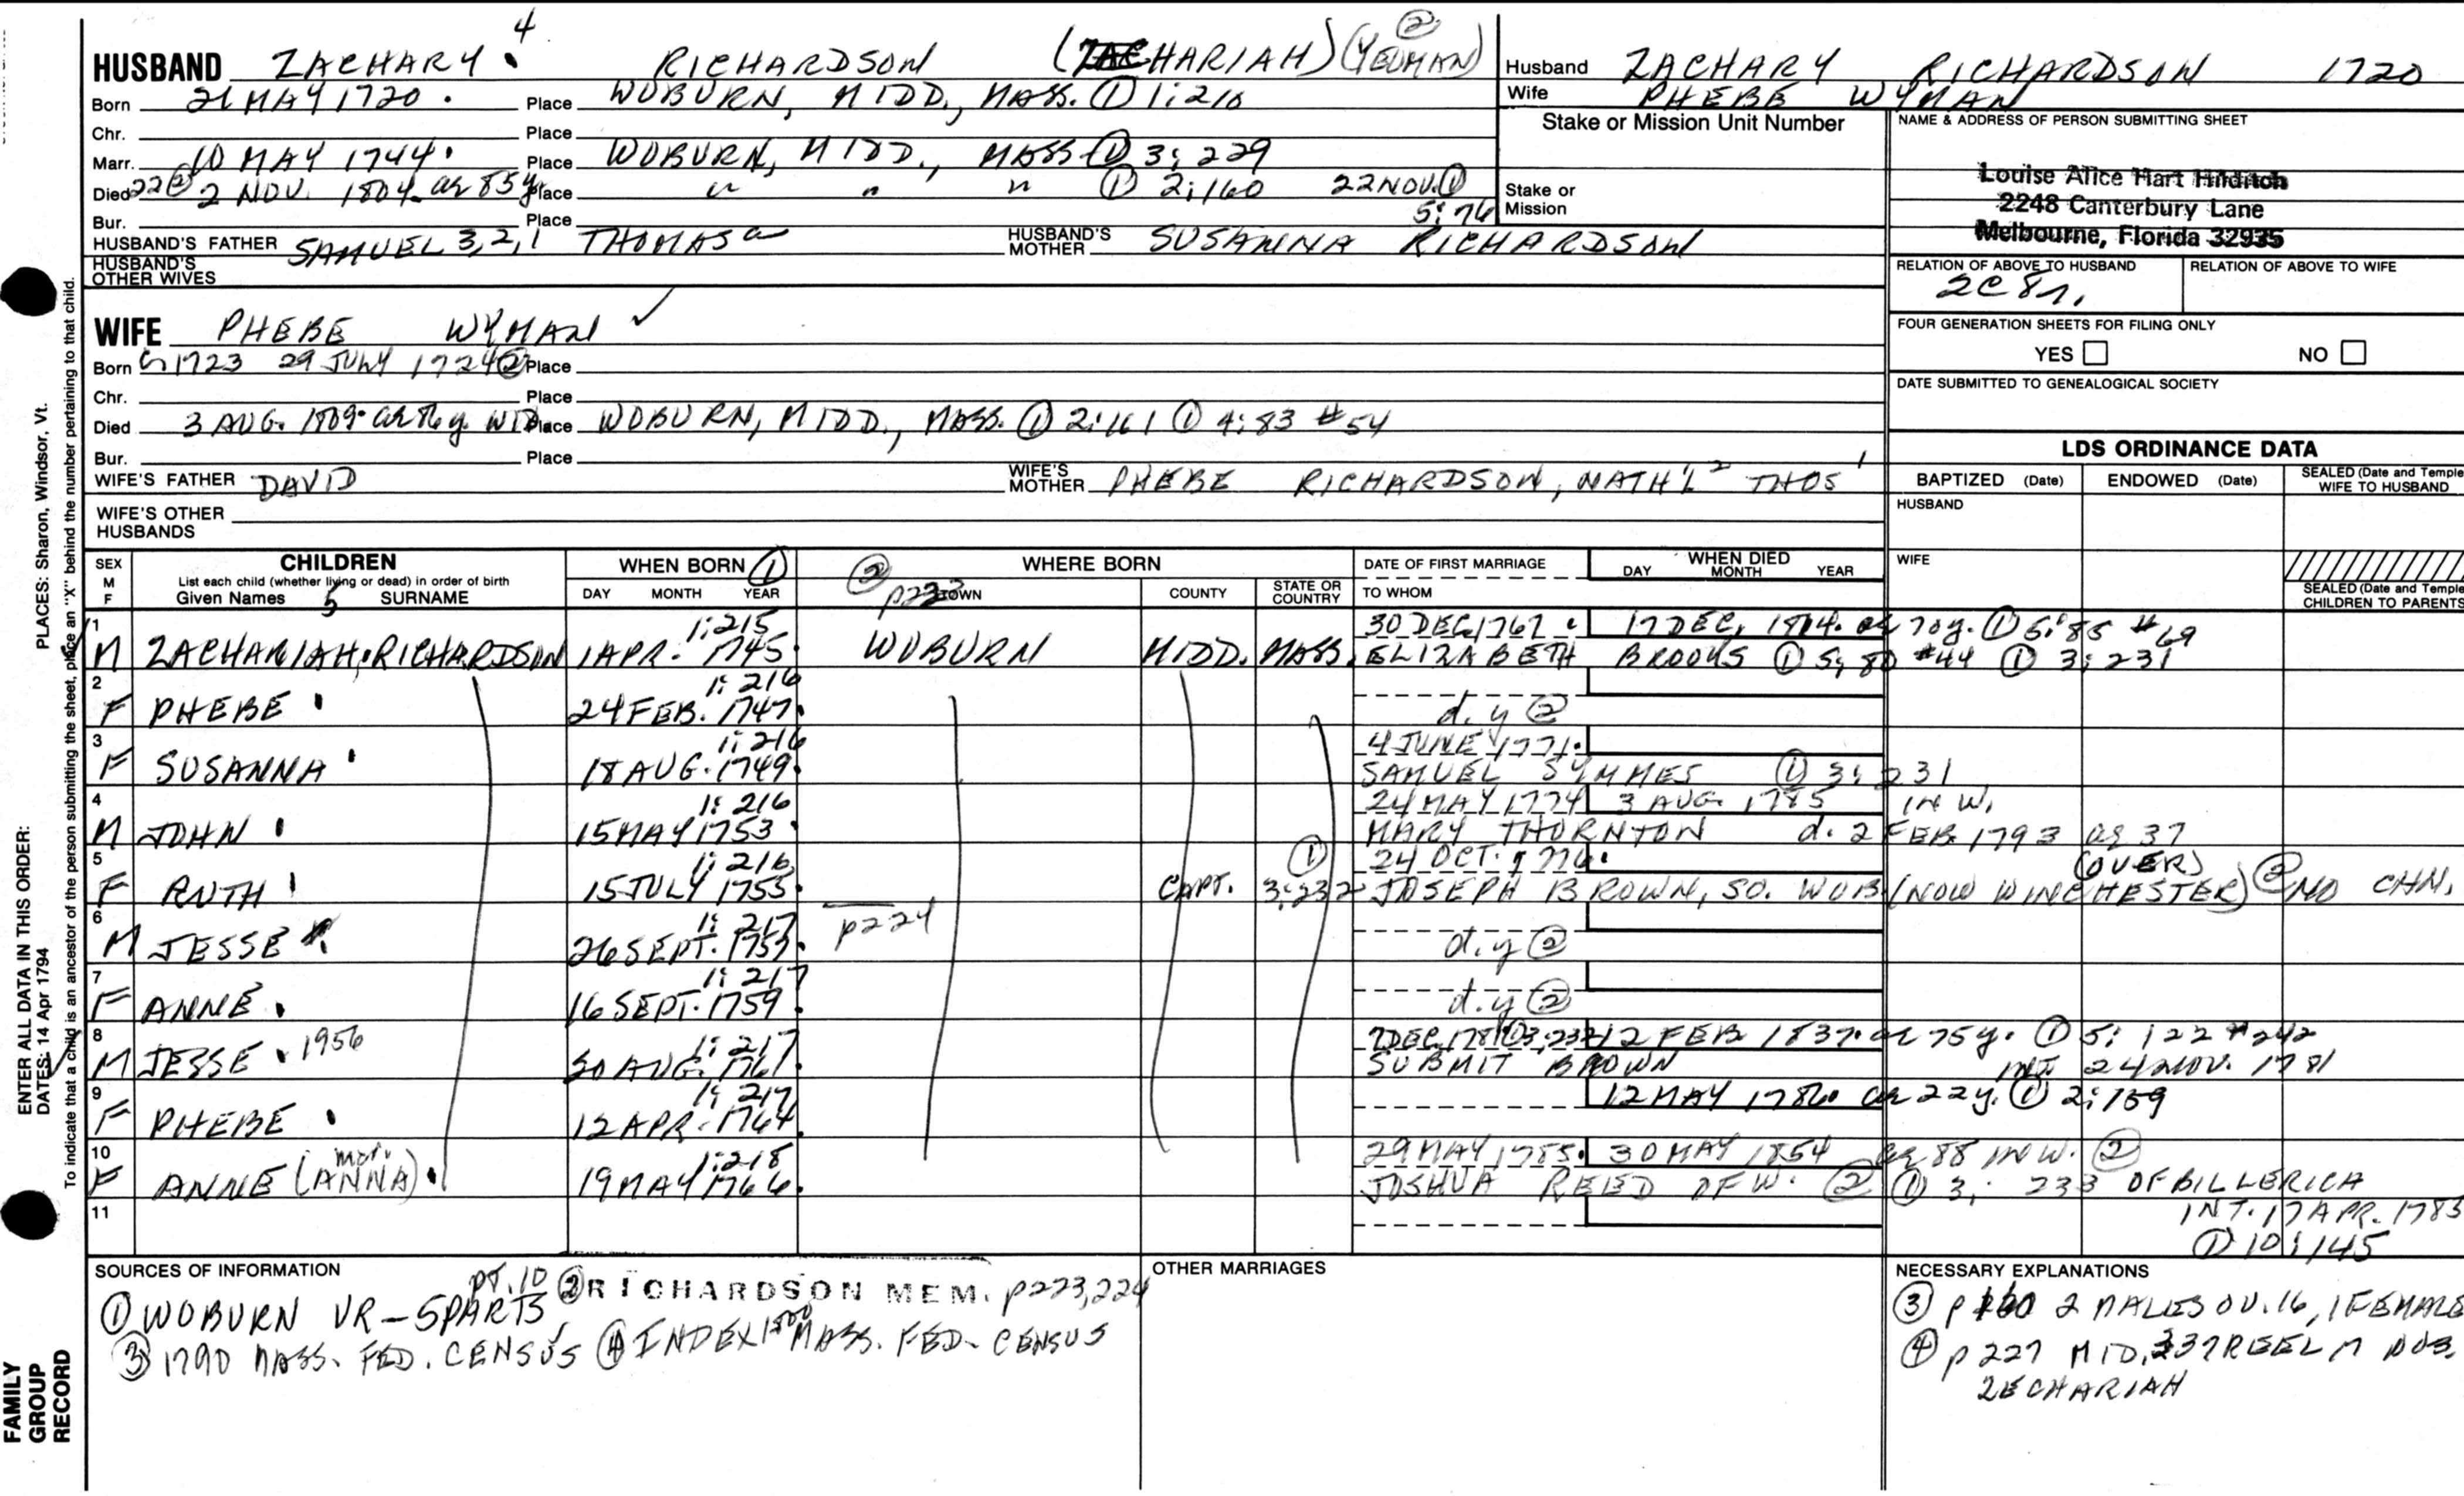 4
HUSBAND ZACHARY RICHARDSON (ZACHARIAH) (YEOMAN) ②
Born 21 MAY 1720. Place WOBURN, MIDD., MASS. ① 1:210
Chr. Place
Marr. 10 MAY 1744. Place WOBURN, MIDD., MASS ① 3:229
Died 22② 2 NOV. 1804. ae 85y. Place " " " ① 2:160 22 NOV. ①
5:76
Bur. Place
HUSBAND'S FATHER SAMUEL 3,2,1 THOMAS HUSBAND'S MOTHER SUSANNA RICHARDSON
HUSBAND'S OTHER WIVES
Husband ZACHARY RICHARDSON 1720
Wife PHEBE WYMAN
Stake or Mission Unit Number
Stake or Mission
NAME & ADDRESS OF PERSON SUBMITTING SHEET
Louise Alice Hart Hilditch
2248 Canterbury Lane
Melbourne, Florida 32935
RELATION OF ABOVE TO HUSBAND RELATION OF ABOVE TO WIFE
2C 8r.
FOUR GENERATION SHEETS FOR FILING ONLY
YES NO
DATE SUBMITTED TO GENEALOGICAL SOCIETY
WIFE PHEBE WYMAN ✓
Born 1723 29 JULY 1724② Place
Chr. Place
Died 3 AUG. 1809. ae 86y. WID Place WOBURN, MIDD., MASS. ① 2:161 ① 4:83 #54
Bur. Place
WIFE'S FATHER DAVID WIFE'S MOTHER PHEBE RICHARDSON, NATH'L 2 THOS 1
WIFE'S OTHER HUSBANDS
LDS ORDINANCE DATA
BAPTIZED (Date) ENDOWED (Date) SEALED (Date and Temple) WIFE TO HUSBAND
HUSBAND
WIFE
SEALED (Date and Temple) CHILDREN TO PARENTS
SEX M F
CHILDREN
List each child (whether living or dead) in order of birth
Given Names 5 SURNAME
WHEN BORN ①
DAY MONTH YEAR
② p223
WHERE BORN
TOWN COUNTY STATE OR COUNTRY
DATE OF FIRST MARRIAGE
TO WHOM
WHEN DIED
DAY MONTH YEAR
1 1:215 30 DEC 1767. 17 DEC. 1814. ae 70y. ① 5:85 #69
M ZACHARIAH RICHARDSON 1 APR. 1745. WOBURN MIDD. MASS. ELIZABETH BROOKS ① 5:80 #44 ① 3:231
2 1:216
F PHEBE 24 FEB. 1747. d.y ②
3 1:216 4 JUNE 1771.
F SUSANNA 18 AUG. 1749. SAMUEL SYMMES ① 3:231
4 1:216 24 MAY 1774 3 AUG. 1785 IN W.
M JOHN 15 MAY 1753. MARY THORNTON d. 2 FEB. 1793 ae 37
5 1:216 ① 24 OCT. 1776. (OVER)
F RUTH 15 JULY 1755. CAPT. 3:232 JOSEPH BROWN, SO. WOB (NOW WINCHESTER) ② NO CHN.
6 1:217 p224
M JESSE 26 SEPT. 1757. d.y ②
7 1:217
F ANNE. 16 SEPT. 1759 d.y ②
8 1:217 7 DEC. 1781 ① 3:232 12 FEB 1837. ae 75y. ① 5:122 #242
M JESSE. 1956 30 AUG. 1761. SUBMIT BROWN INT. 24 NOV. 1781
9 1:217 12 MAY 1786. ae 22y. ① 2:159
F PHEBE 12 APR. 1764.
10 1:218 29 MAY 1785. 30 MAY 1854 ae 88 IN W. ②
F ANNE (ANNA). marr. 19 MAY 1766. JOSHUA REED OF W. ② ① 3:233 OF BILLERICA
11 INT. 17 APR. 1785
① 10:145
SOURCES OF INFORMATION
① WOBURN VR - 5 PARTS, PT. 10 ② RICHARDSON MEM. p223,224
③ 1790 MASS. FED. CENSUS ④ INDEX 1800 MASS. FED. CENSUS
OTHER MARRIAGES
NECESSARY EXPLANATIONS
③ p 2 MALES OV. 16, 1 FEMALE
④ p 227 MID, 337 REEL M
ZECHARIAH
PLACES: Sharon, Windsor, Vt.
ENTER ALL DATA IN THIS ORDER:
DATES: 14 Apr 1794
To indicate that a child is an ancestor of the person submitting the sheet, place an "X" behind the number pertaining to that child.
FAMILY
GROUP
RECORD